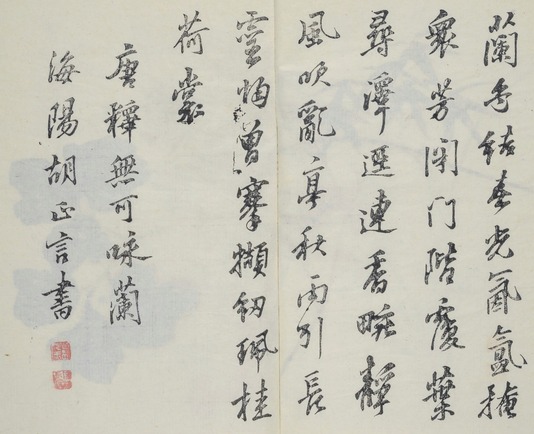 蘭色結春光氤氳掩
衆芳門階覆葉
尋澤連香畹靜
風吹亂亭秋雨引長
靈均曾搴擷紉珮桂
荷裳
唐釋無可咏蘭
海陽胡正言書